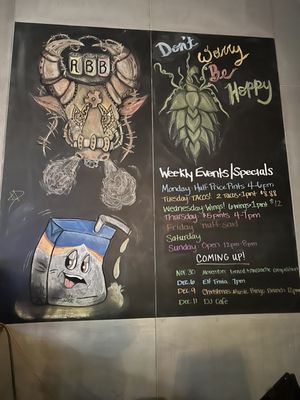 RBB
Don't
Worry
Be
Hoppy
Weekly Events/Specials
Monday Half Price Pints 4-6pm
Tuesday TACOS! 2 tacos + 1 pint
Wednesday Wings! 6 wings + 1 pint $12
Thursday $5 pints 4-7pm
Friday nuff said
Saturday
Sunday Open 12pm-8pm
COMING UP!
Nov. 30
Dec. 6 Elf Trivia 7pm
Dec. 9 Christmas Music Bingo Brunch 12pm
Dec. 11 DJ Cafe